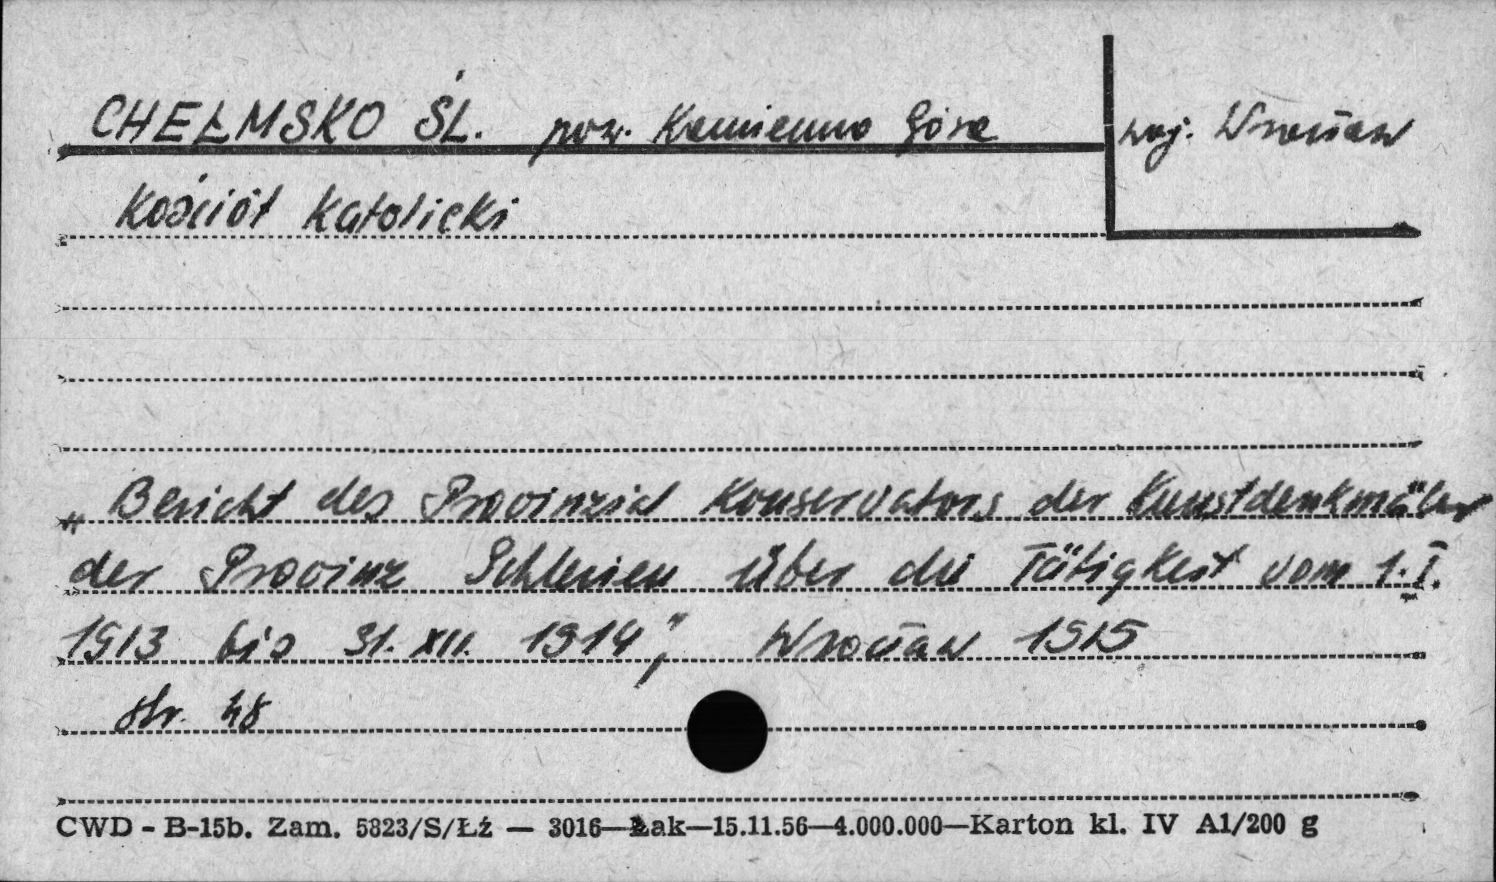 CHEŁMSKO ŚL. pow. Kamienna Góra woj. Wrocław
Kościół Katolicki
„Bericht des Provinzial Konservators der Kunstdenkmäler
der Provinz Schlesien über die Tätigkeit vom 1.I.
1913 bis 31.XII. 1914", Wrocław 1915
str. 48
CWD - B-15b. Zam. 5823/S/Łź — 3016—Łak—15.11.56—4.000.000—Karton kl. IV A1/200 g